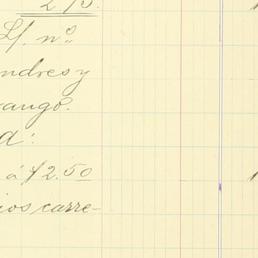 215.
Lf. nº
ndres y
rango.
a:
á $2.50
ios carre-